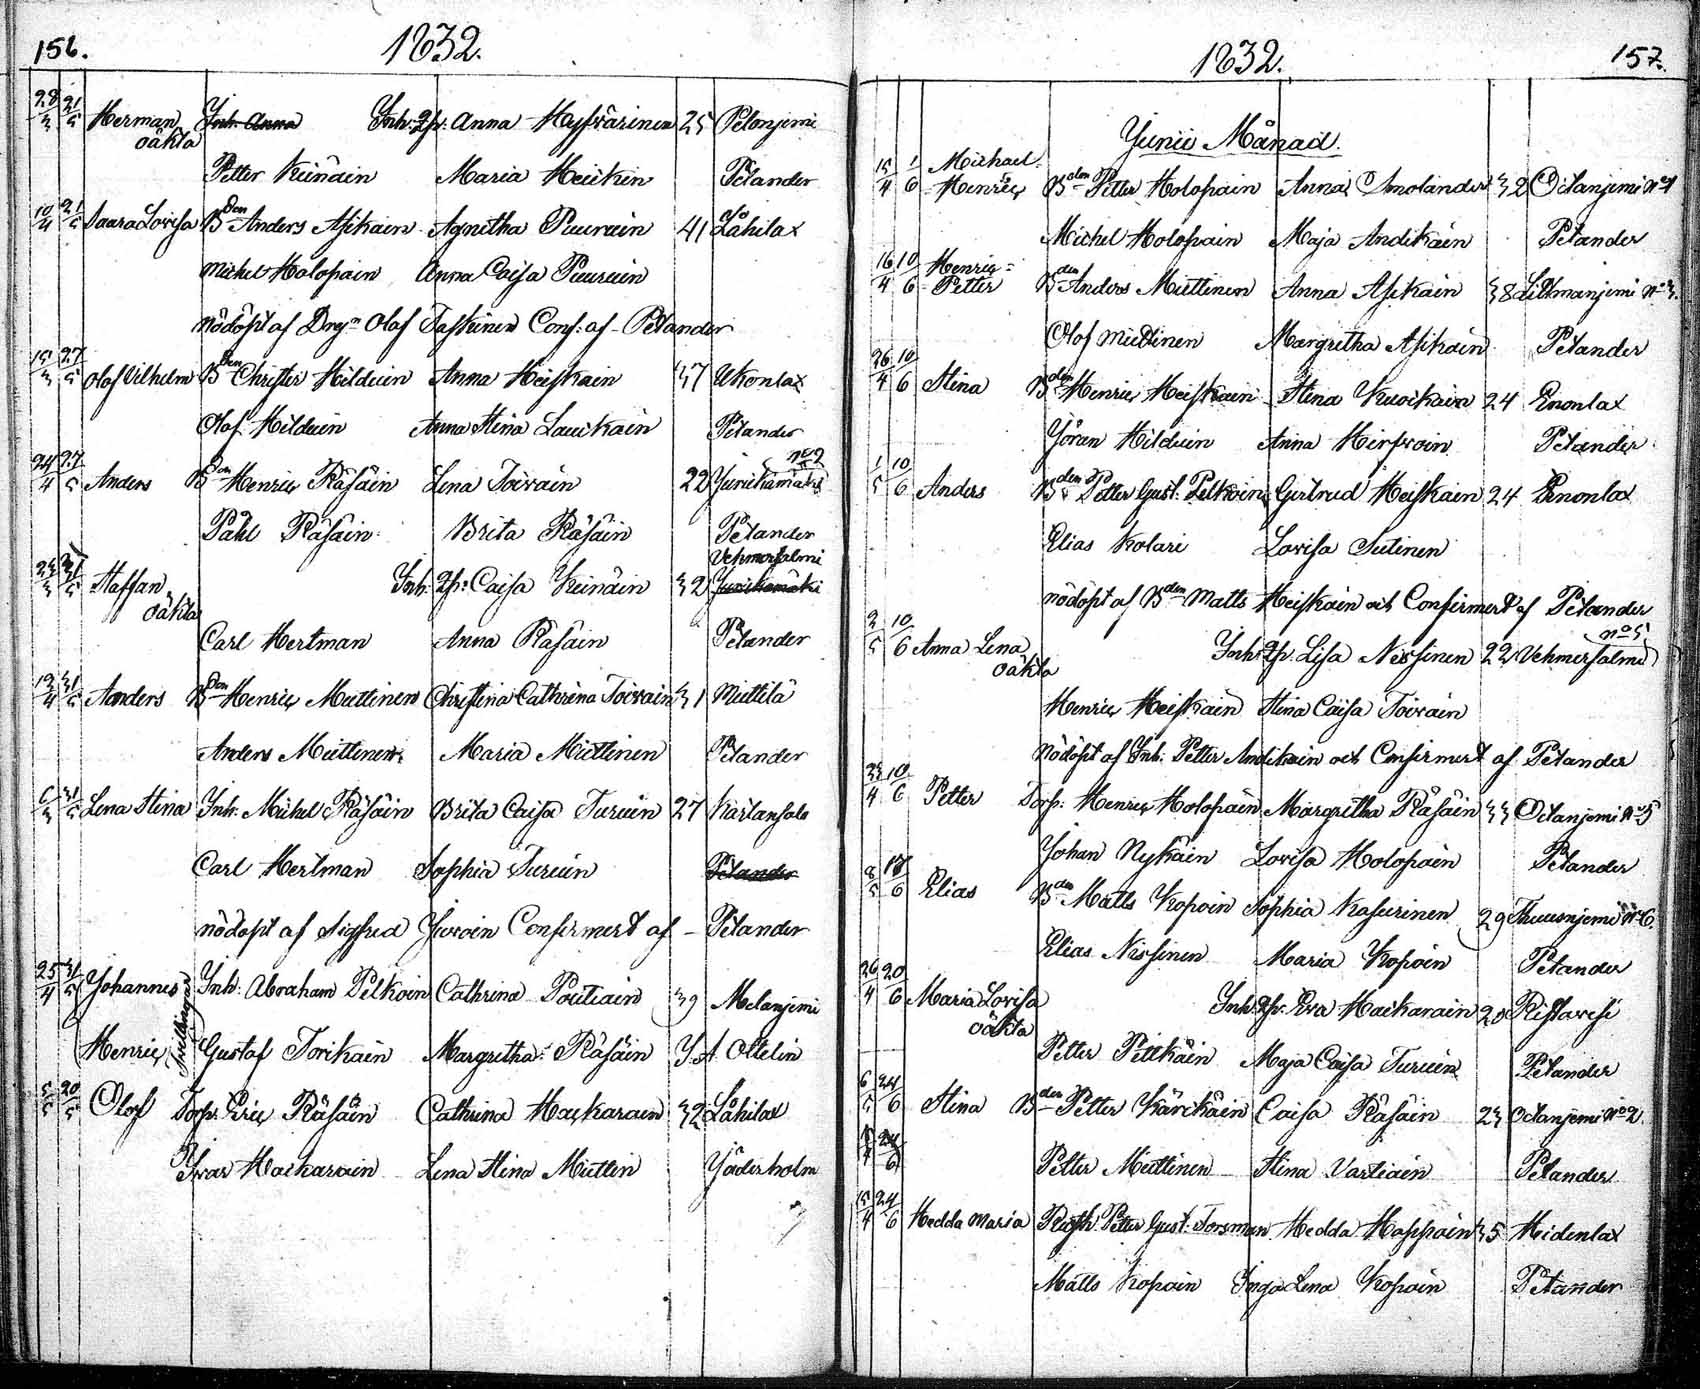 156.
1832.
28/3 21/5 Herman Inh. Anna Inh: Anna Hyfvärinen 25 Pelonjemi
oäkta
Petter Keinäin Maria Heickin Pelander
10/4 21/5 Saara Lovisa Bden Anders Asikain Agnetha Puuruin 41 Låhilax
Michel Holopain Anna Caisa Puuruin
nödöpt af Drgn Olof Taskinen Conf: af Pelander
15/3 27/5 Olof Vilhelm Bden Christer Hilduin Anna Heiskain 37 Ukonlax
Olof Hilduin Anna Stina Lauckain Pelander
No 2
24/4 27/5 Anders Bden Henric Räsäin Lena Toivain 22 Jurickamäki
Påhl Räsäin Brita Räsäin Pelander
Vehmersalmi
23/3 31/5 Staffan Inh: Caisa Keinäin 32 Jurickamäki
oäkta
Carl Hertman Anna Räsäin Pelander
19/4 31/5 Anders Bden Henric Miettinen Christina Cathrina Toivain 31 Miettilä
Anders Miettinen Maria Miettinen Pelander
6/3 31/5 Lena Stina Inh: Michel Räsäin Brita Caisa Turuin 27 Kärtansalo
Carl Hertman Sophia Turuin Pelander
nödöpt af Sigfred Confirmert af Pelander
25/4 31/5 Johannes Inh: Abraham Pelkoin Cathrina Poutiain 39 Melanjemi
Tvillingar
Henric Gustaf Torikain Margretha Räsäin J. A. Ottelin
5/5 20/5 Olof Torp: Eric Räsäin Cathrina Hackarain 32 Låhilax
Ivar Hackarain Lena Stina Miettin Jäderholm
1832.
157.
Junii Månad.
15/4 1/6 Michael
Henric Bden Petter Holopain Anna Smolander 32 Oitanjemi No 4
Michel Holopain Maja Andikain Pelander
16/4 10/6 Henric
Petter Bden Anders Miettinen Anna Asikain 38 Litmanjemi No 3.
Olof Miettinen Margretha Asikain Pelander
26/4 10/6 Stina Bden Henric Heiskain Stina Kuoikain 24 Enonlax
Jöran Hilduin Anna Hirfvoin Pelander
1/5 10/6 Anders Bden Petter Gust: Pelkoin Gertrud Heiskain 24 Enonlax
Elias Kolari Lovisa Sutinen
nödöpt af Bden Matts Heiskain och Confirmert af Pelander
No 5
2/5 10/6 Anna Lena Inh: Lisa Nissinen 22 Vehmersalmi
oäkta
Henric Heiskain Stina Caisa Toivain
nödöpt af Inh: Petter Andikain och Confirmert af Pelander
23/4 10/6 Petter Torp: Henric Holopain Margretha Räsäin 33 Oitanjemi No 5
Johan Nykäin Lovisa Holopain Pelander
8/5 17/6 Elias Bden Matts Kopoin Sophia Kasurinen 29 No 6.
Elias Nissinen Maria Kopoin Pelander
26/4 20/6 Maria Lovisa Inh: Eva Hackarain 20 Ristavesi
oäkta
Petter Pitkäin Maja Caisa Turuin Pelander
6/5 24/6 Stina Bden Petter Kärckäin Caisa Räsäin 23 Oitanjemi No 2.
Petter Miettinen Stina Vartiain Pelander
15/4 24/6 Hedda Maria Petter Gust: Forsman Hedda Happain 35 Hidenlax
Matts Kopoin Inga Lena Kopoin Pelander